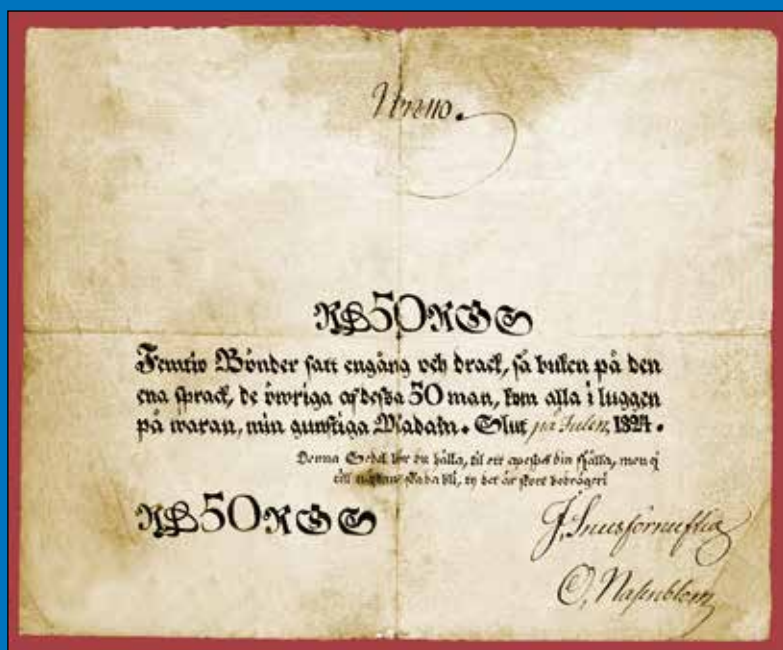 50
Femtio Bönder satt engång och drack, så buken på den
ena sprack, de öwriga af dessa 50 man, kom alla i luggen
på waran, min gunstiga Madam. Slut på Julen, 1824.
Denna Sedel bör du hålla, til ett din fjälla, men ej
till skada bli, ty det är stort bedrägeri
50
J. Snusförnuftig
O, Nasenblom